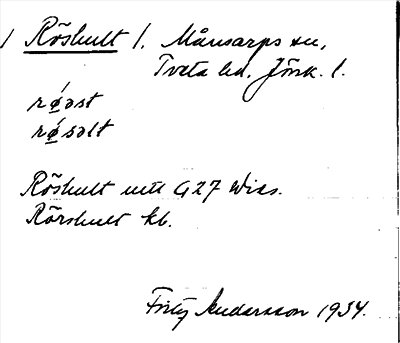 Röshult l. Månsarps sn,
Tveta hd. Jönk. l.
rǿəst
rǿsəlt
Röshult mtl G27 Wies.
Rörshult kb.
Fritz Andersson 1934.